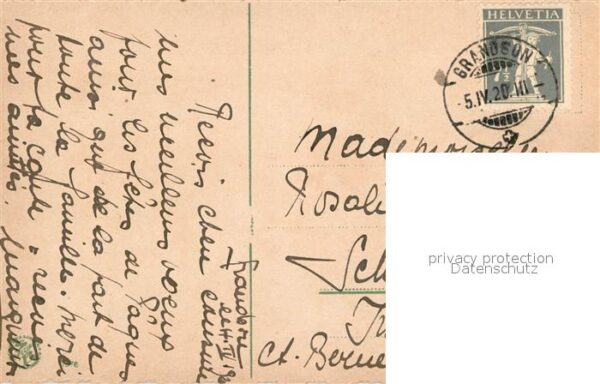 HELVETIA
7½
GRANDSON
-5.IV.20.III
Grandson
le 4 IV
Reçois chère
mes meilleurs voeux
pour les fêtes de Pâques
ainsi que de la part de
toute la famille. Merci
pour ta carte
mes amitiés. Marguerite
Mademoiselle
Rosali
Ct. Berne
privacy protection
Datenschutz